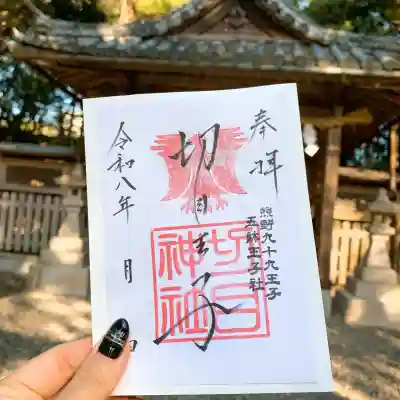 奉拝
熊野九十九王子
五躰王子社
切目王子
切目神社
令和八年
月